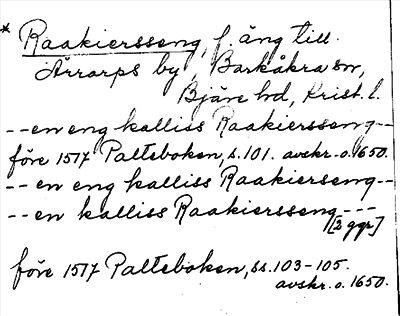 * Raakiersseng, f. äng till.
Ärrarps by, Barkåkra sn,
Bjäre hd, Krist. l.
--en eng kalliss Raakiersseng--
före 1517 Palteboken, s. 101. avskr. o. 1650.
--en eng kalliss Raakierseng--
--en kalliss Raakiersseng---
[2 ggr]
före 1517 Palteboken, ss. 103-105.
avskr. o. 1650.